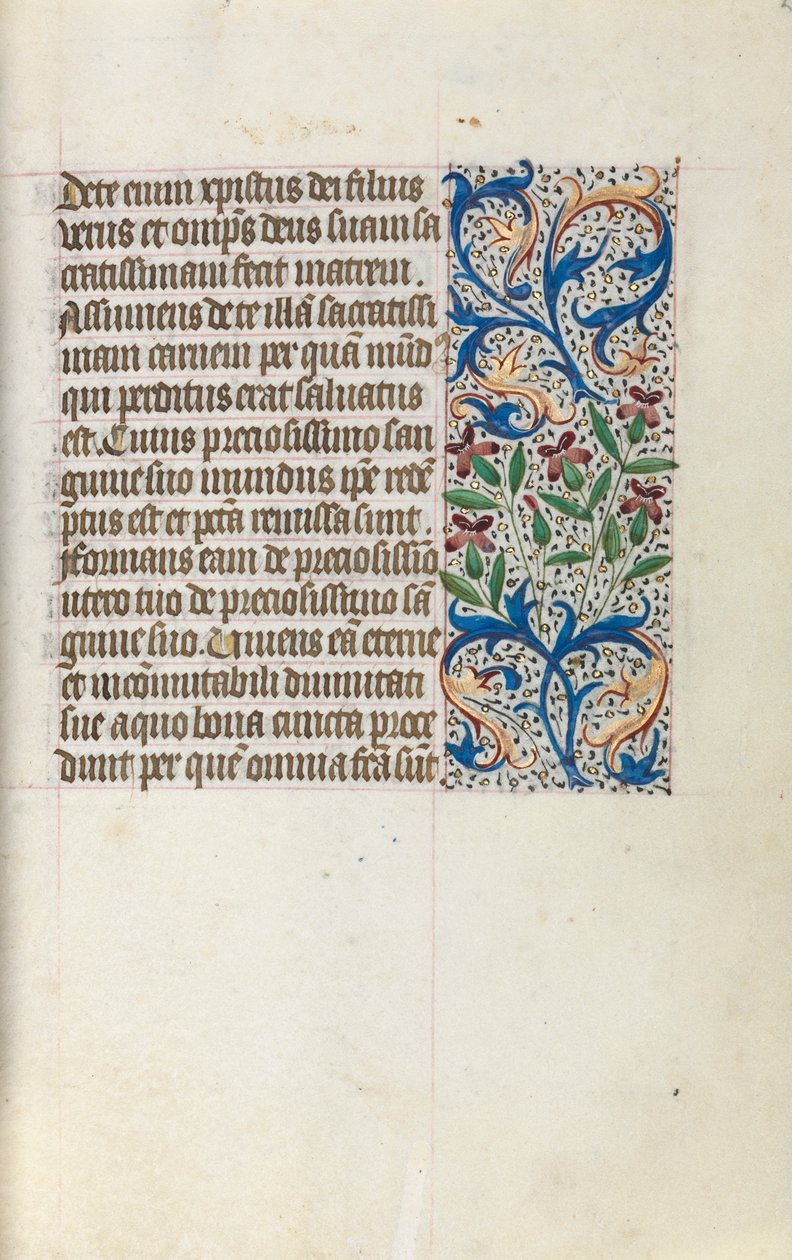 De te enim xpistus dei filius
verus et omīps deus suam sa
cratissimam fecit matrem.
Assumens de te illā sacratissi
mam carnem per quā mūd9
qui perditus erat saluatus
est. Cuius preciosissimo san
guine suo mundus ipē redē
ptus est et pctā remissa sunt.
Formans eam de preciosissīo
utero tuo de preciosissimo sā
guine suo. Uniens eā eterne
et incōmutabili diuinitati
sue a quo bona cuncta proce
dunt per quē omnia fcā sūt